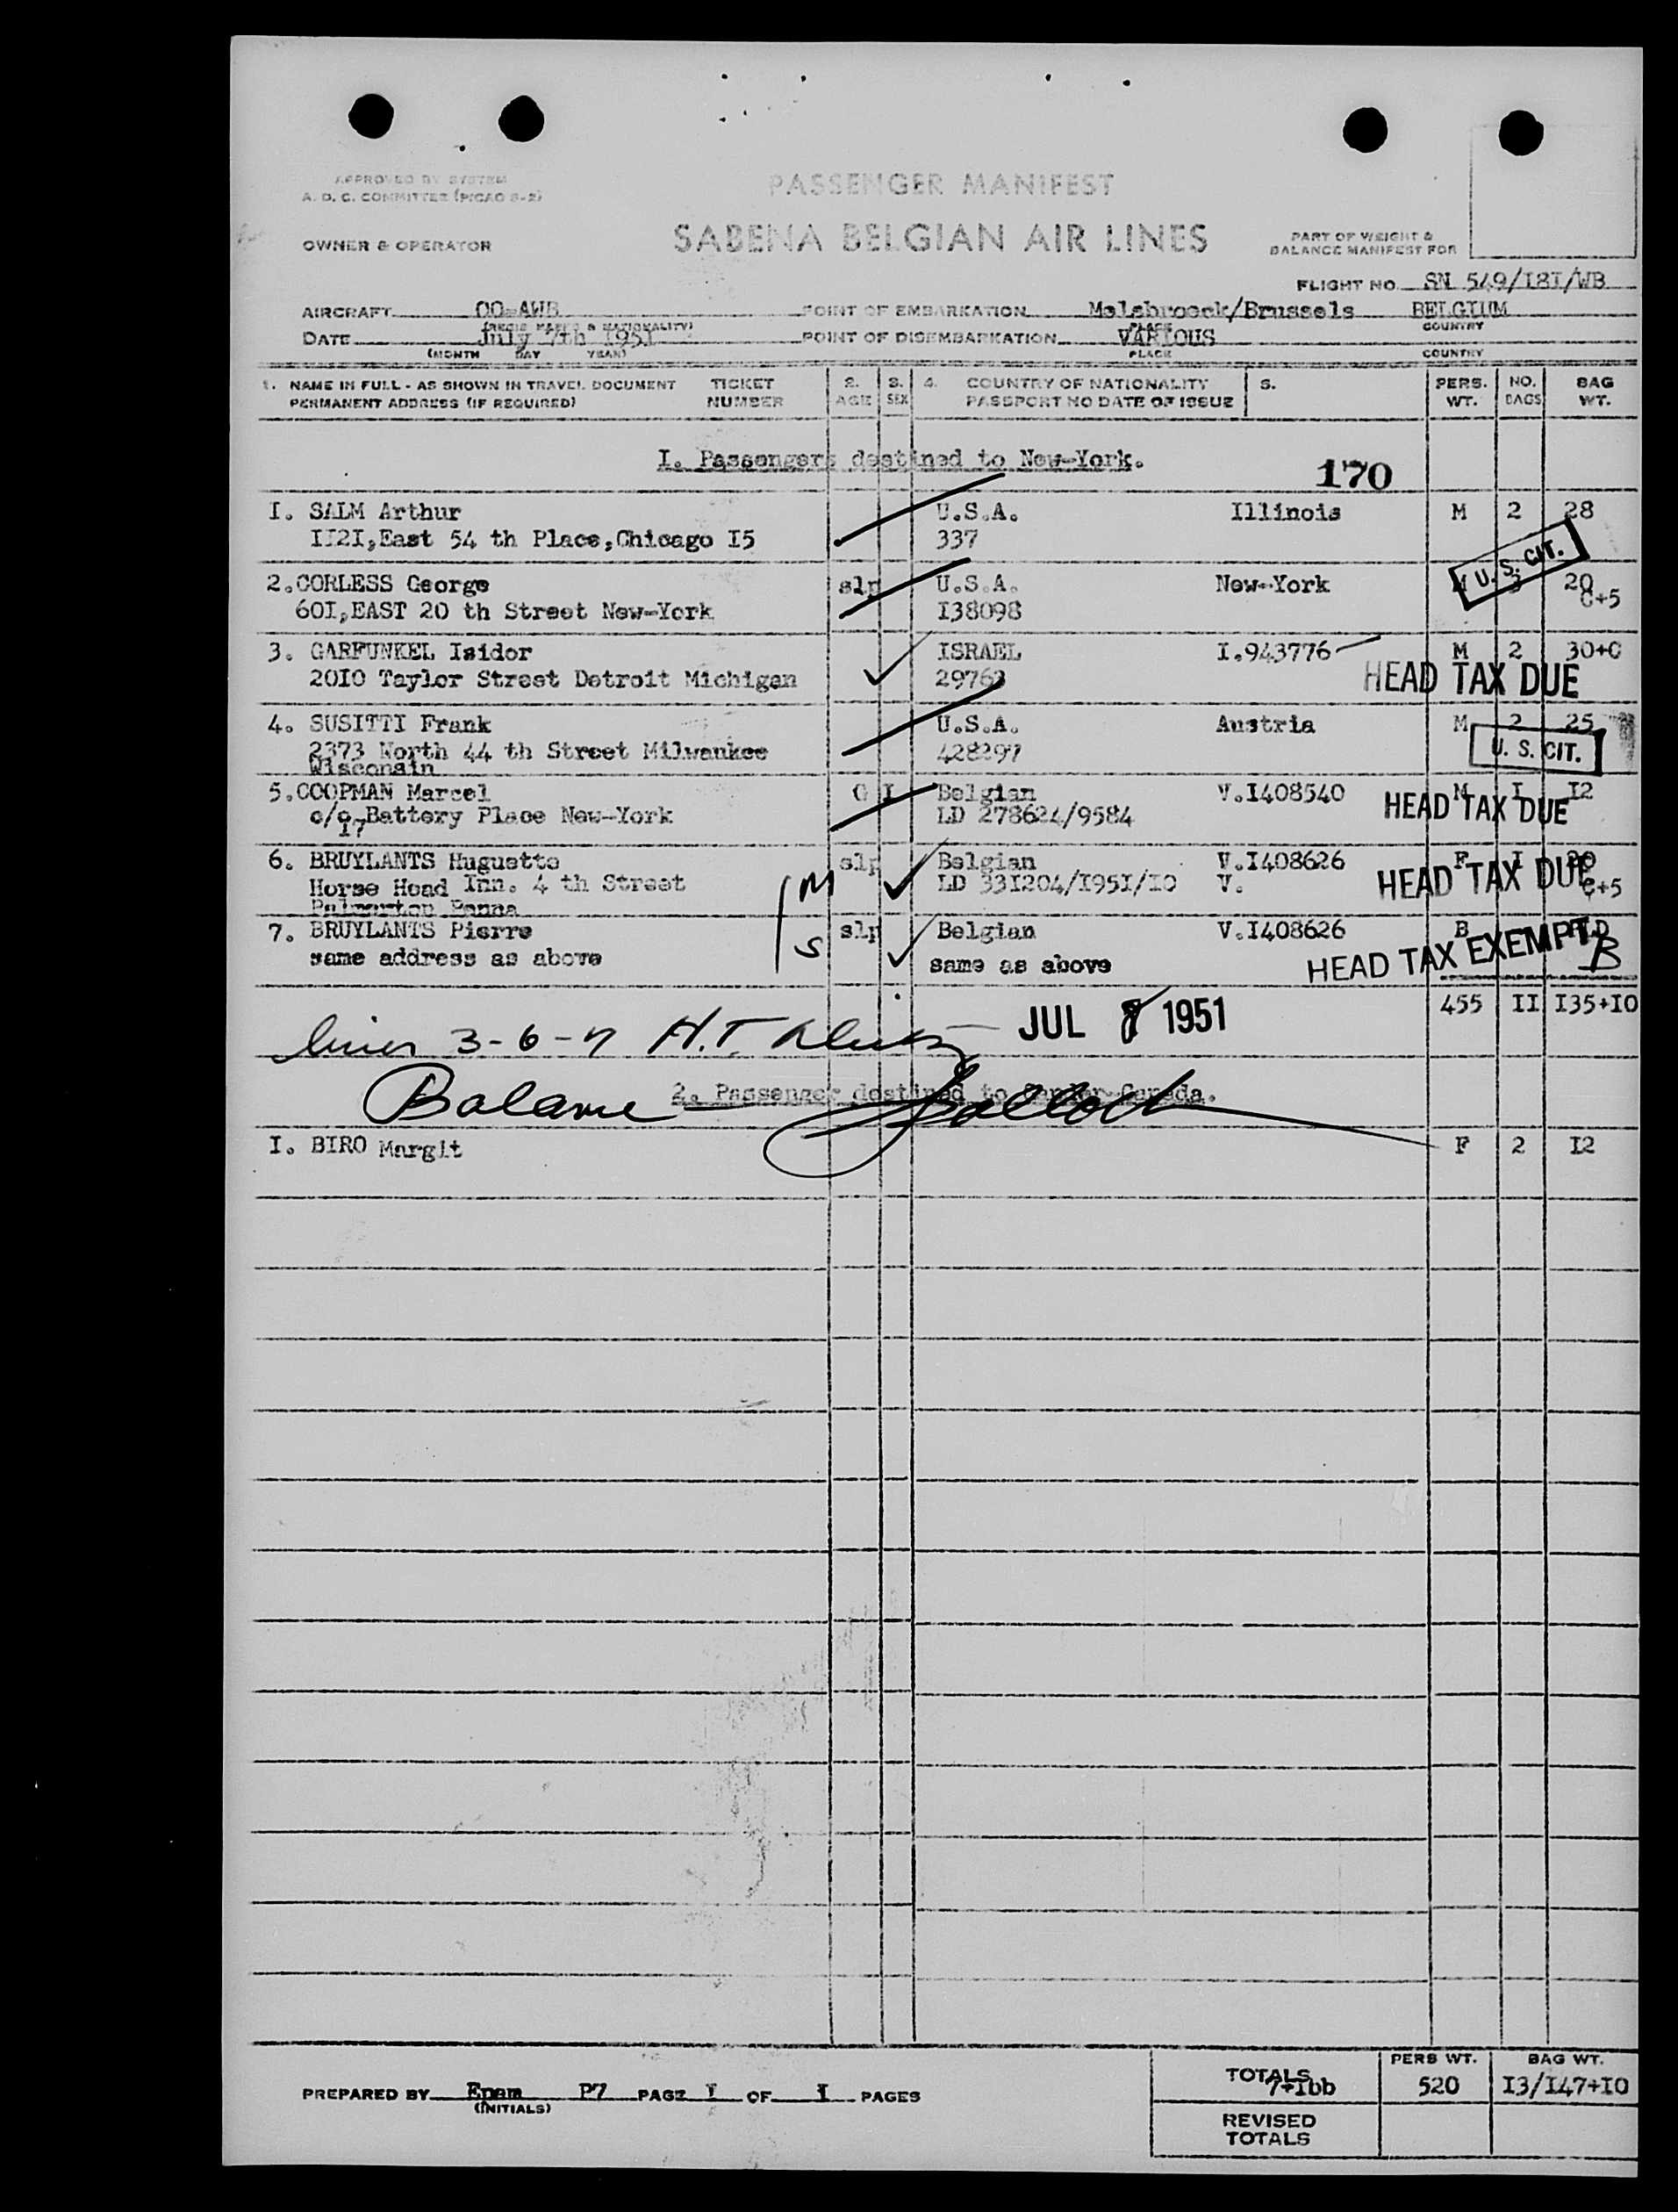 APPROVED BY SYSTEM
A. O. C. COMMITTEE (PICAO S-2)
PASSENGER MANIFEST
SABENA BELGIAN AIR LINES
OWNER & OPERATOR
PART OF WEIGHT &
BALANCE MANIFEST FOR
FLIGHT NO. SN 549/I8I/WB
AIRCRAFT OO-AWB POINT OF EMBARKATION Melsbroeck/Brussels BELGIUM
(REGIS MARKS & NATIONALITY) PLACE COUNTRY
DATE July 7th 1951 POINT OF DISEMBARKATION VARIOUS
(MONTH DAY YEAR) PLACE COUNTRY
1. NAME IN FULL - AS SHOWN IN TRAVEL DOCUMENT TICKET 2. 3. 4. COUNTRY OF NATIONALITY 5. PERS. NO. BAG
PERMANENT ADDRESS (IF REQUIRED) NUMBER AGE SEX PASSPORT NO DATE OF ISSUE WT. BAGS WT.
I. Passengers destined to New-York.
170
I. SALM Arthur U.S.A. Illinois M 2 28
II2I,East 54 th Place,Chicago I5 337
U. S. CIT.
2.CORLESS George slp U.S.A. New-York M 3 20
60I,EAST 20 th Street New-York I38098 C+5
3. GARFUNKEL Isidor ISRAEL I.943776 M 2 30+C
20I0 Taylor Street Detroit Michigan 29763 HEAD TAX DUE
4. SUSITTI Frank U.S.A. Austria M 2 25
2373 North 44 th Street Milwaukee 428297 U. S. CIT.
Wisconsin
5.COOPMAN Marcel C I Belgian V.I408540 M I I2
c/o Battery Place New-York LD 278624/9584 HEAD TAX DUE
I7
6. BRUYLANTS Huguette slp Belgian V.I408626 F I 20
Horse Head Inn. 4 th Street M LD 33I204/I95I/IO V. HEAD TAX DUE C+5
Palmerton Penna
7. BRUYLANTS Pierre slp Belgian V.I408626 B
same address as above S same as above HEAD TAX EXEMPT B
455 II I35+IO
3-6-7 H.T. JUL 8 1951
2. Passenger destined to Canada.
Balance
I. BIRO Margit F 2 I2
PERS WT. BAG WT.
TOTALS 7+Ibb 520 I3/I47+IO
PREPARED BY Epam P7 PAGE I OF I PAGES
(INITIALS)
REVISED
TOTALS